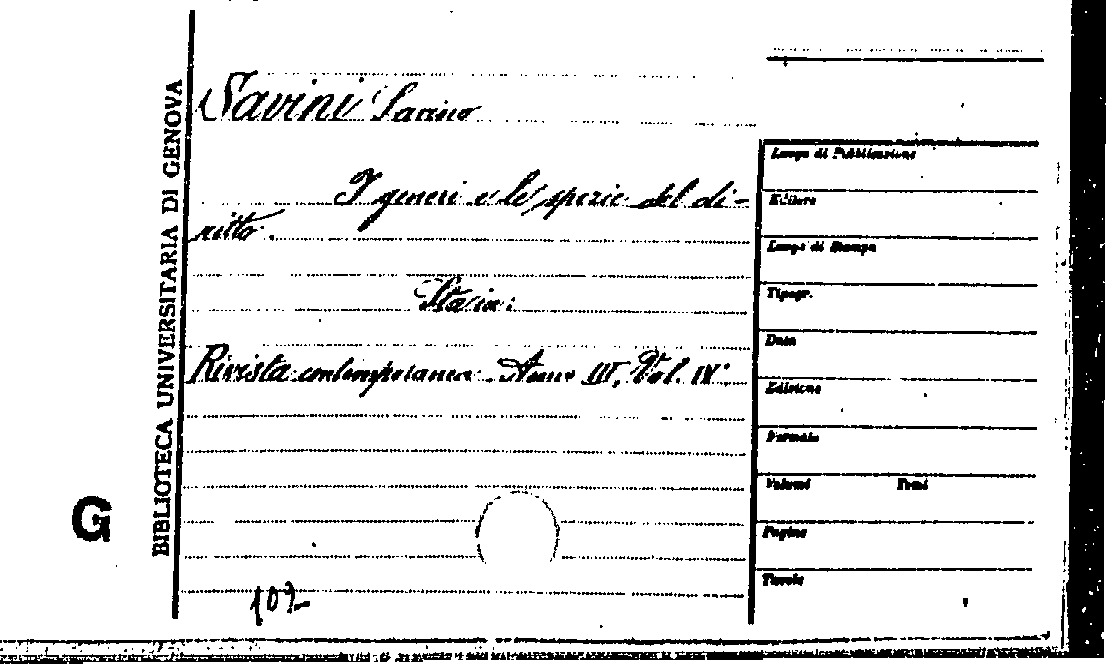 Savini Savino
I generi e le spezie del di-
ritto.
Sta in:
Rivista contemporanea. Anno III, Vol. IV
102
BIBLIOTECA UNIVERSITARIA DI GENOVA
G
Luogo di Pubblicazione
Editore
Luogo di Stampa
Tipogr.
Data
Edizione
Formato
Volumi Tomi
Pagine
Tavole